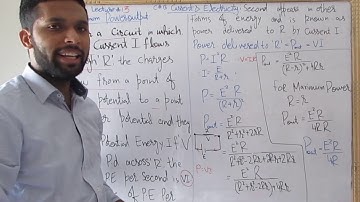 Lecture # 13
Maximum Power output
a Circuit in which
Current I flows
'R' the Charges
from a point of
potential to a point
potential and they
Potential Energy If V
Pd across 'R' the
PE per Second is VI
of PE Per
Ch# Current & Electricity
Second appears in other
forms of energy and is known as
power delivered to R by Current I.
Power delivered to 'R' = Pout = VI
P = I²R
V = IR
I = E/R+r
P = E²R/(R+r)²
Pout = E²R/R²+r²+2Rr
Pout = E²R/R²+r²-2Rr+2Rr+2Rr
= E²R/(R²+r²-2Rr)+4Rr
P = VI
Pout = E²R/(R-r)²+4Rr
for Maximum Power
R = r
Pout = E²R/4Rr
Pout = E²R/4R